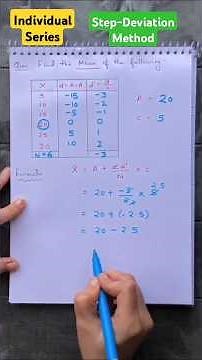 Individual Series
Step-Deviation Method
Que: Find the Mean of the following
X d = X - A d' = d/c
5 -15 -3
10 -10 -2
15 -5 -1
20 0 0
25 5 1
30 10 2
N=6 -3
A = 20
C = 5
Formula
X̄ = A + Σd'/N × c
= 20 + -3/6 × 5
= 20 + (-2.5)
= 20 - 2.5